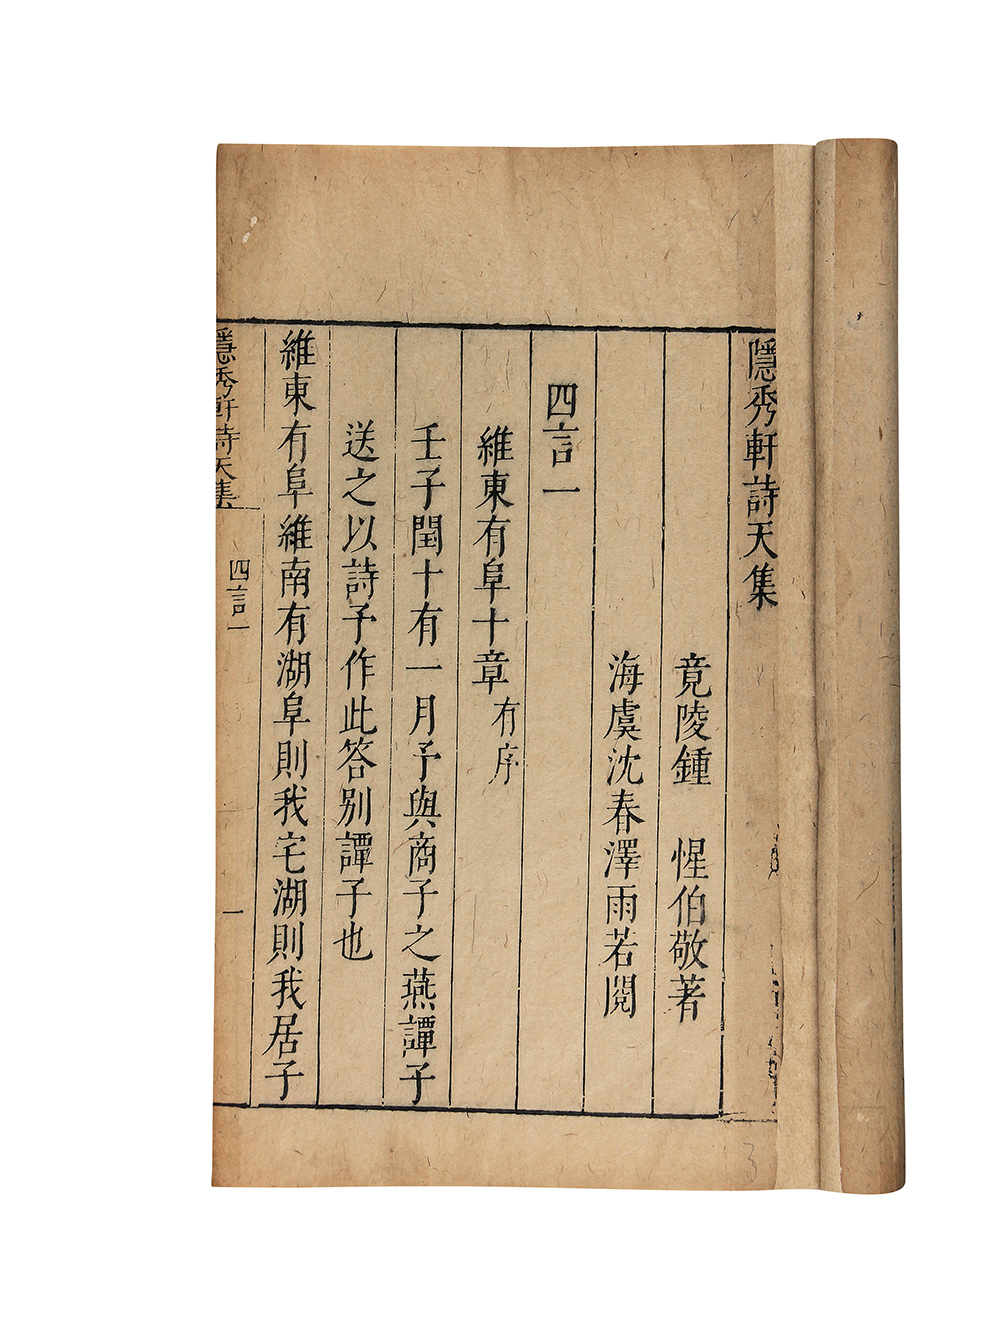 隱秀軒詩天集
竟陵鍾　惺伯敬著
海虞沈春澤雨若閱
四言一
維東有阜十章有序
壬子閏十有一月予與商子之燕譚子
送之以詩予作此答別譚子也
維東有阜維南有湖阜則我宅湖則我居子
隱秀軒詩天集
四言一
一